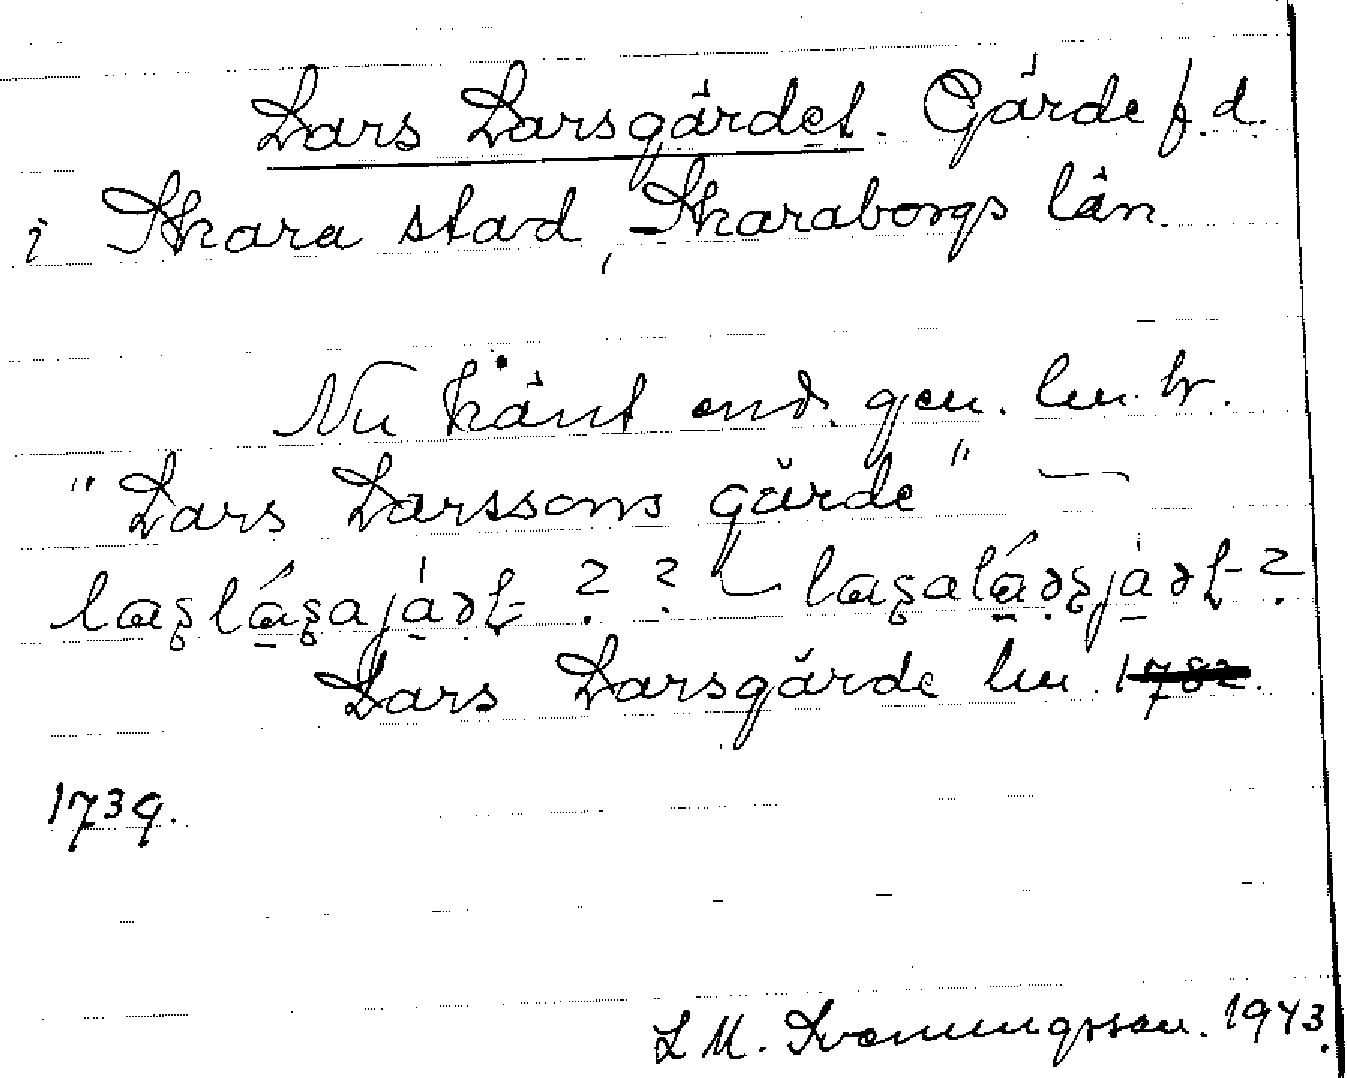 Lars Larsgärdet. Gärde f.d.
i Skara stad, Skaraborgs län.
Nu känt end. gen. lm. hr.
"Lars Larssons gärde" —
Lars Larsgärde lm. 1782.
1739.
L M. Svenungsson. 1943.